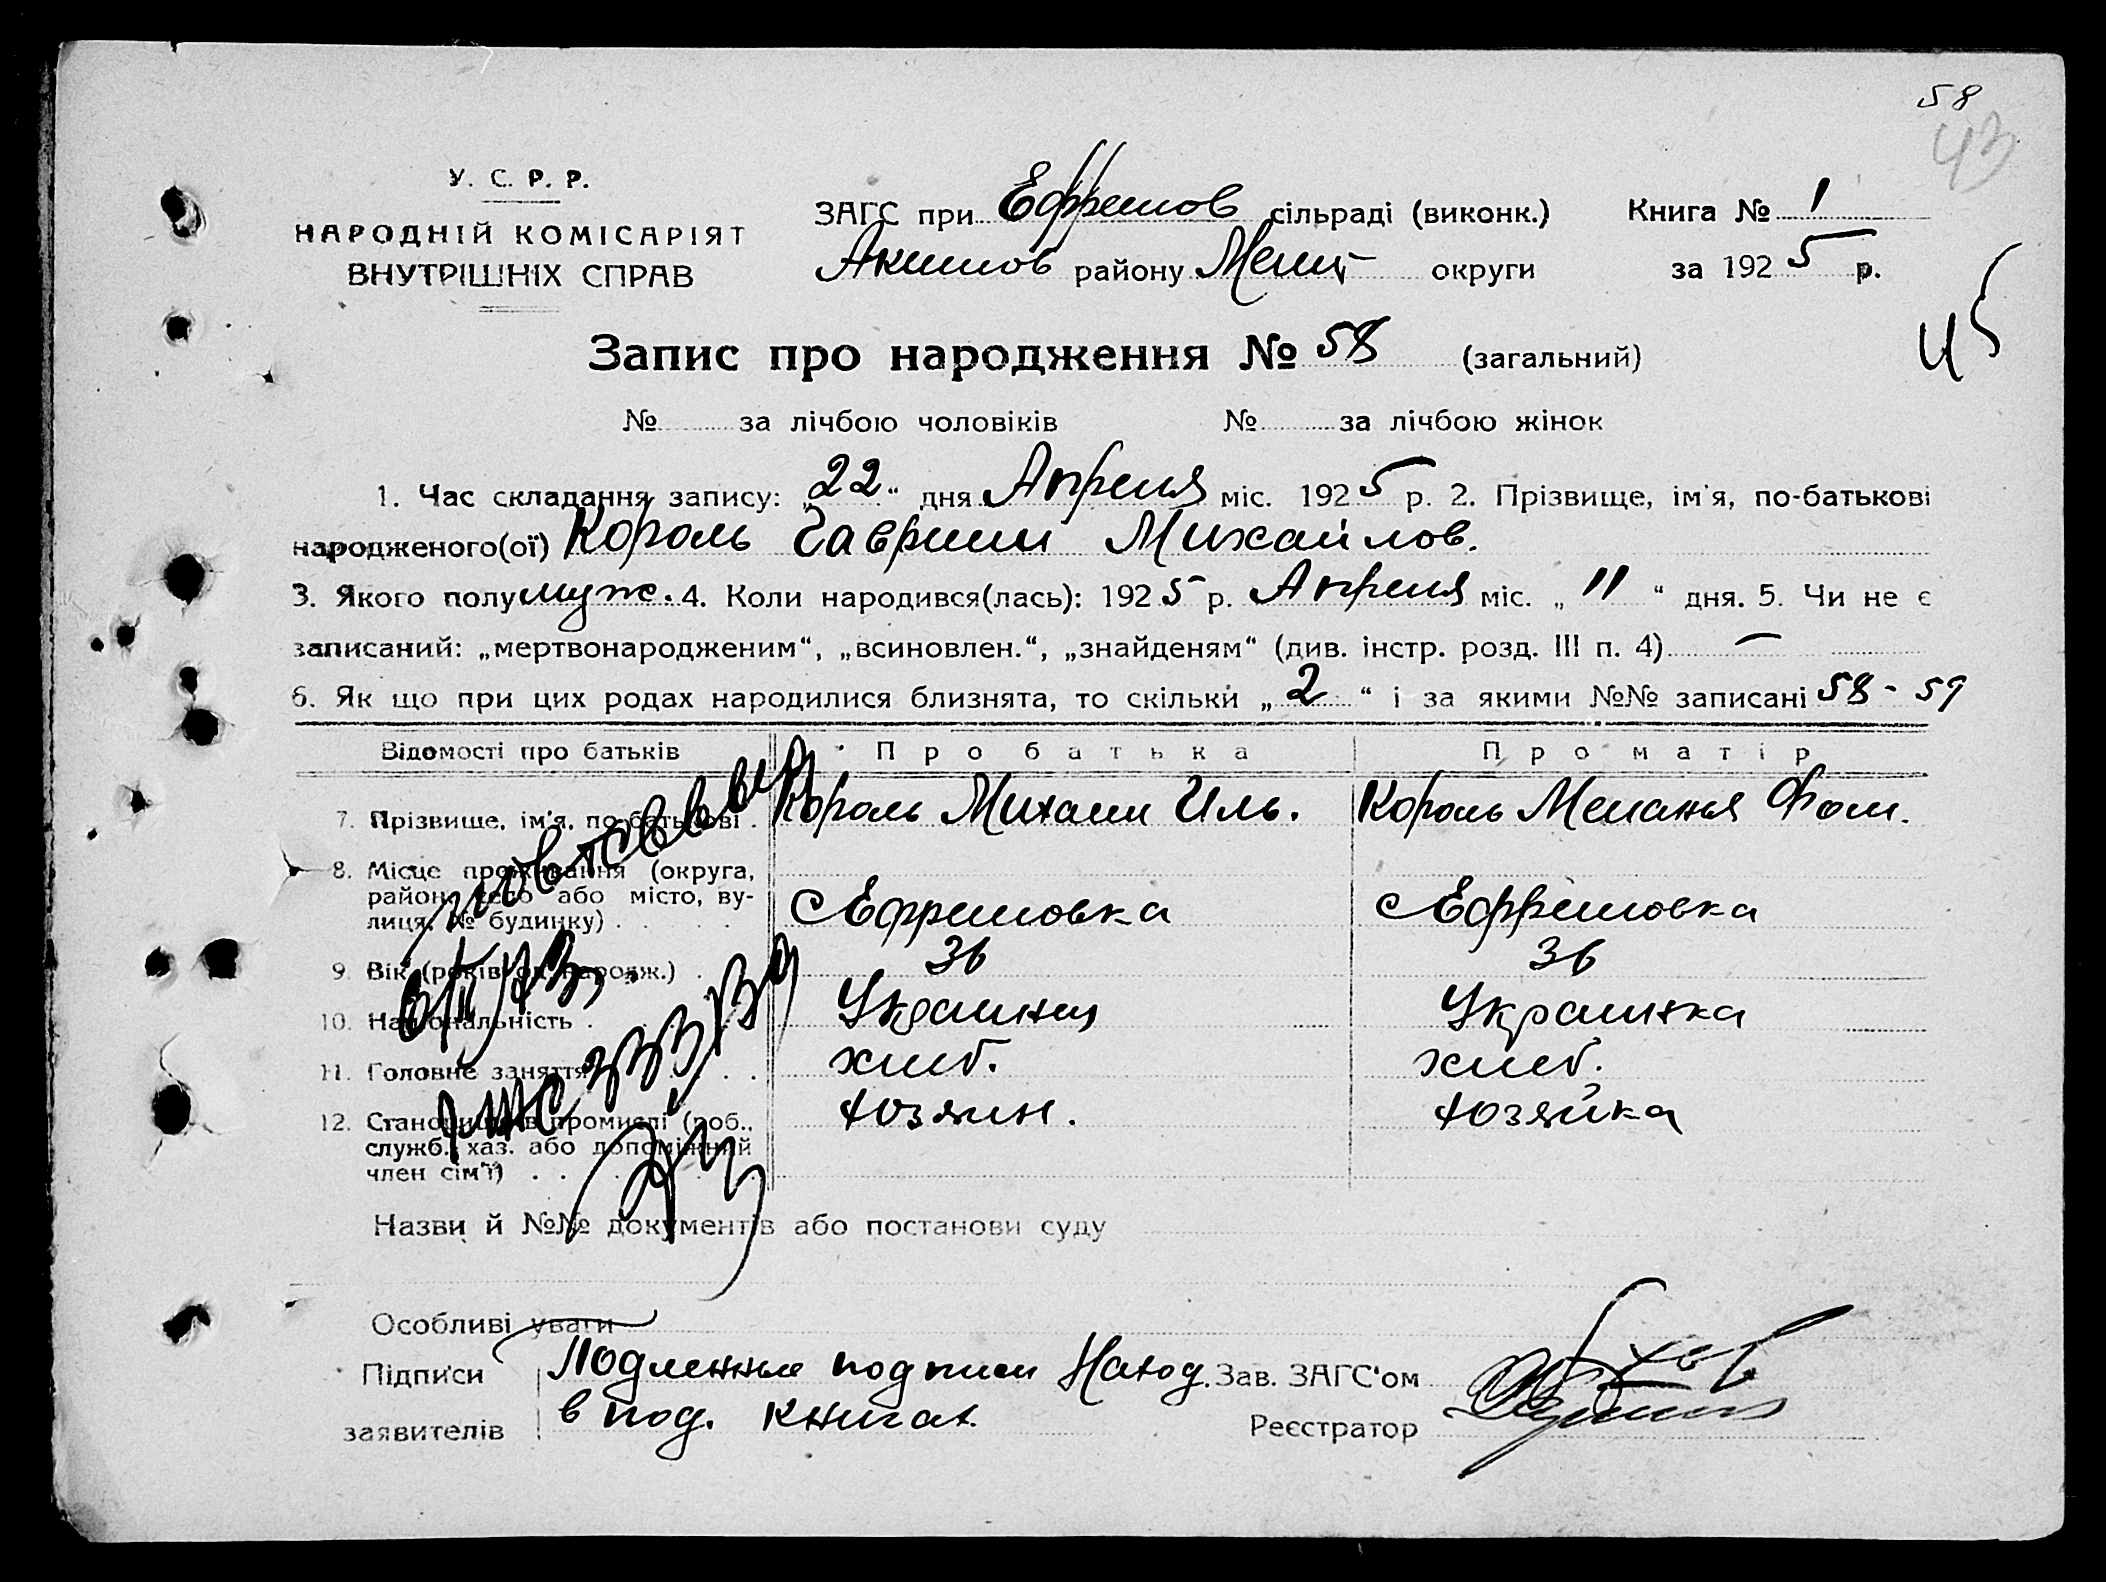 58
43
У. С. Р. Р.
НАРОДНІЙ КОМІСАРІЯТ
ВНУТРІШНІХ СПРАВ
ЗАГС при Ефремов сільраді (виконк.)
Книга № 1
Акимов району Мелит округи
за 1925 р.
45
Запис про народження № 58 (загальний)
№ за лічбою чоловіків № за лічбою жінок
1. Час складання запису: „22“ дня Апреля міс. 1925 р. 2. Прізвище, ім'я, по-батькові
народженого(ої) Король Гавриил Михайлов.
3. Якого полу муж. 4. Коли народився(лась): 1925 р. Апреля міс. „11“ дня. 5. Чи не є
записаний: „мертвонародженим“, „всиновлен.“, „знайденям“ (див. інстр. розд. III п. 4) —
6. Як що при цих родах народилися близнята, то скільки „2“ і за якими №№ записані 58 - 59
Відомості про батьків Про батька Про матір
7. Прізвище, ім'я, по-батькові . Король Михаил Иль. Король Меланья Фом.
8. Місце проживання (округа,
район, село або місто, ву-
лиця, № будинку) . . . с Ефремовка с Ефремовка
9. Вік (років од народж.) . 36 36
10. Національність . Украинец Украинка
11. Головне заняття . . хлеб. хлеб.
12. Становище в промислі (роб.,
служб., хаз. або допоміжний
член сім'ї) . . хозяин. хозяйка
Назви й №№ документів або постанови суду
Особливі уваги
Підписи
заявителів
Подленные подписи Наход.
в под. книгах.
Зав. ЗАГС'ом
Реєстратор